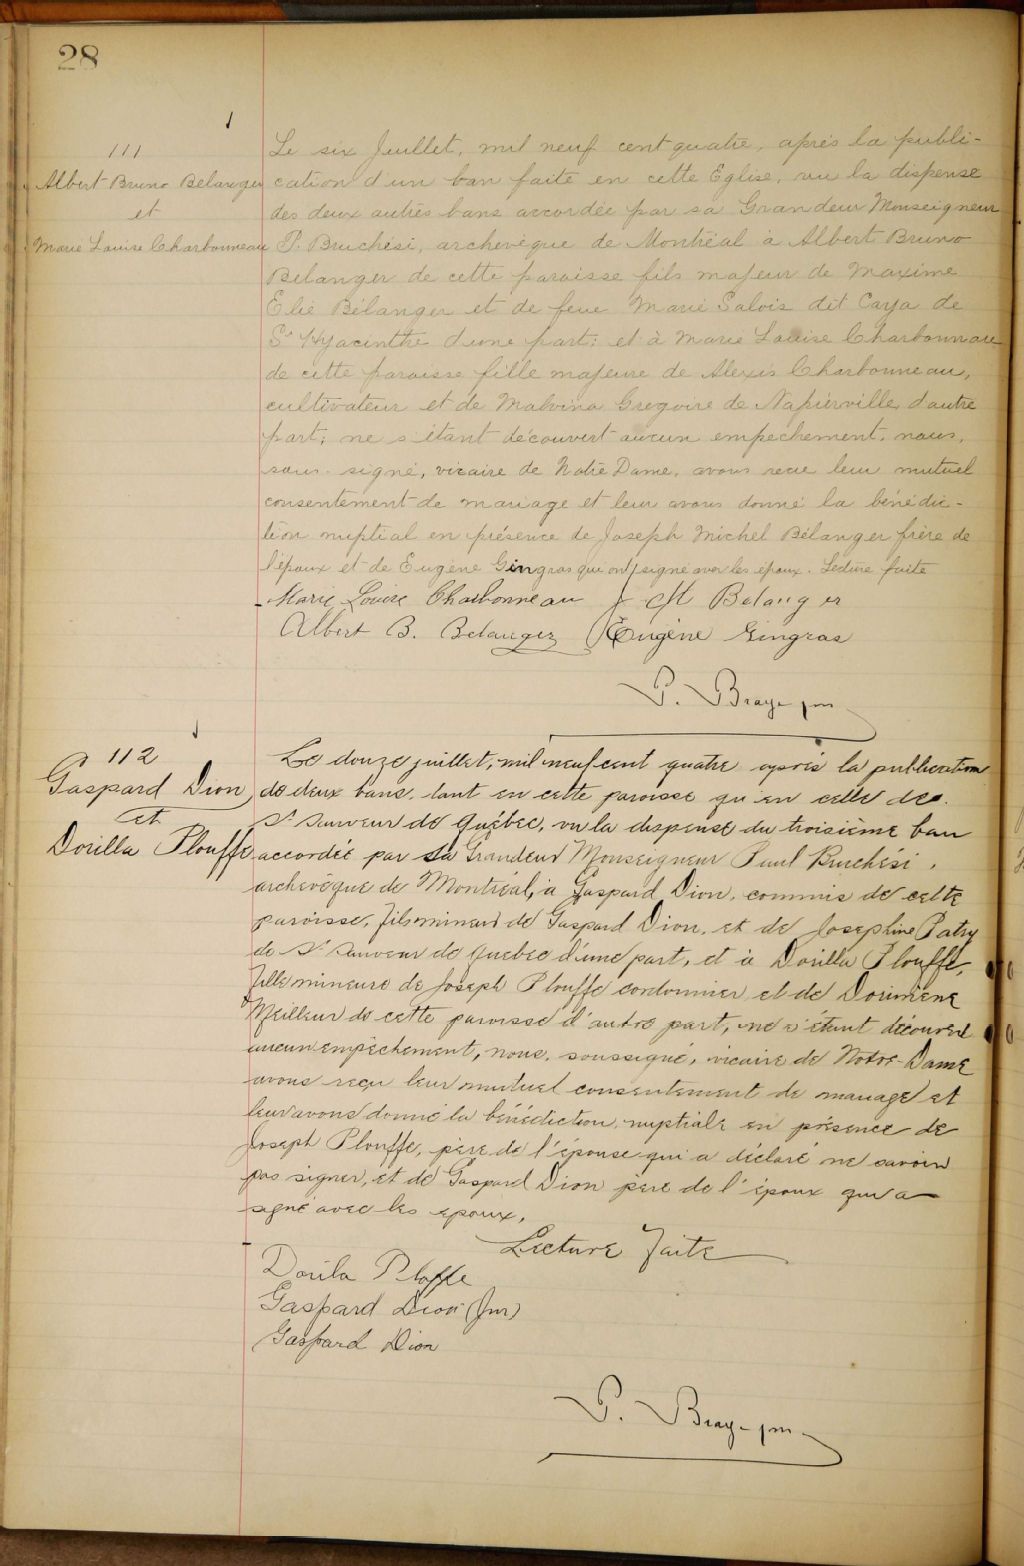 28
111
Albert Bruno Belanger
et
Marie Louise Charbonneau
Le six Juillet, mil neuf cent quatre, après la publi-
cation d'un ban faite en cette Eglise, vu la dispense
des deux autres bans accordée par sa Grandeur Monseigneur
P. Bruchési, archevêque de Montréal à Albert Bruno
Belanger de cette paroisse fils majeur de Maxime
Elie Bélanger et de feue Marie Salois dit Caya de
St Hyacinthe d'une part; et à Marie Louise Charbonneau
de cette paroisse fille majeure de Alexis Charbonneau,
cultivateur et de Malvina Gregoire de Napierville d'autre
part; ne s'étant découvert aucun empechement, nous,
sous-signé, vicaire de Notre Dame, avons reçu leur mutuel
consentement de mariage et leur avons donné la bénédic-
tion nuptial en présence de Joseph Michel Bélanger frère de
l'époux et de Eugène Gingras qui ont signé avec les époux. Lecture faite
Marie Louise Charbonneau J M Belanger
Albert B. Belanger Eugène Gingras
P. Braye ptre
112
Gaspard Dion
et
Dorilla Plouffe
Le douze juillet, mil neuf cent quatre après la publication
de deux bans, tant en cette paroisse qu'en celle de
St Sauveur de Québec, vu la dispense du troisième ban
accordée par Sa Grandeur Monseigneur Paul Bruchési,
archevêque de Montréal, à Gaspard Dion, commis de cette
paroisse, fils mineur de Gaspard Dion, et de Josephine Patry
de St Sauveur de Quebec d'une part, et à Dorilla Plouffe,
fille mineure de Joseph Plouffe cordonnier et de Dorimène
Meilleur de cette paroisse d'autre part, ne s'étant découvert
aucun empêchement, nous, soussigné, vicaire de Notre-Dame
avons reçu leur mutuel consentement de mariage et
leur avons donné la bénédiction nuptiale en présence de
Joseph Plouffe, père de l'épouse qui a déclaré ne savoir
pas signer, et de Gaspard Dion père de l'époux qui a
signé avec les epoux.
Lecture faite
Dorila Ploffe
Gaspard Dion (Jnr)
Gaspard Dion
P. Braye ptre